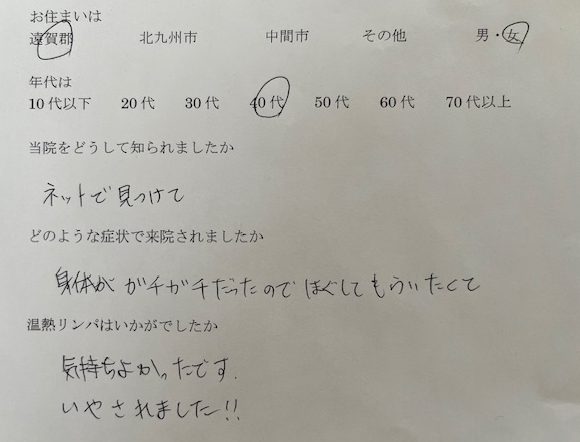 お住まいは
遠賀郡 北九州市 中間市 その他 男・女
年代は
10代以下 20代 30代 40代 50代 60代 70代以上
当院をどうして知られましたか
ネットで見つけて
どのような症状で来院されましたか
身体が ガチガチだったので ほぐして もらいたくて
温熱リンパはいかがでしたか
気持ちよかったです.
いやされました!!